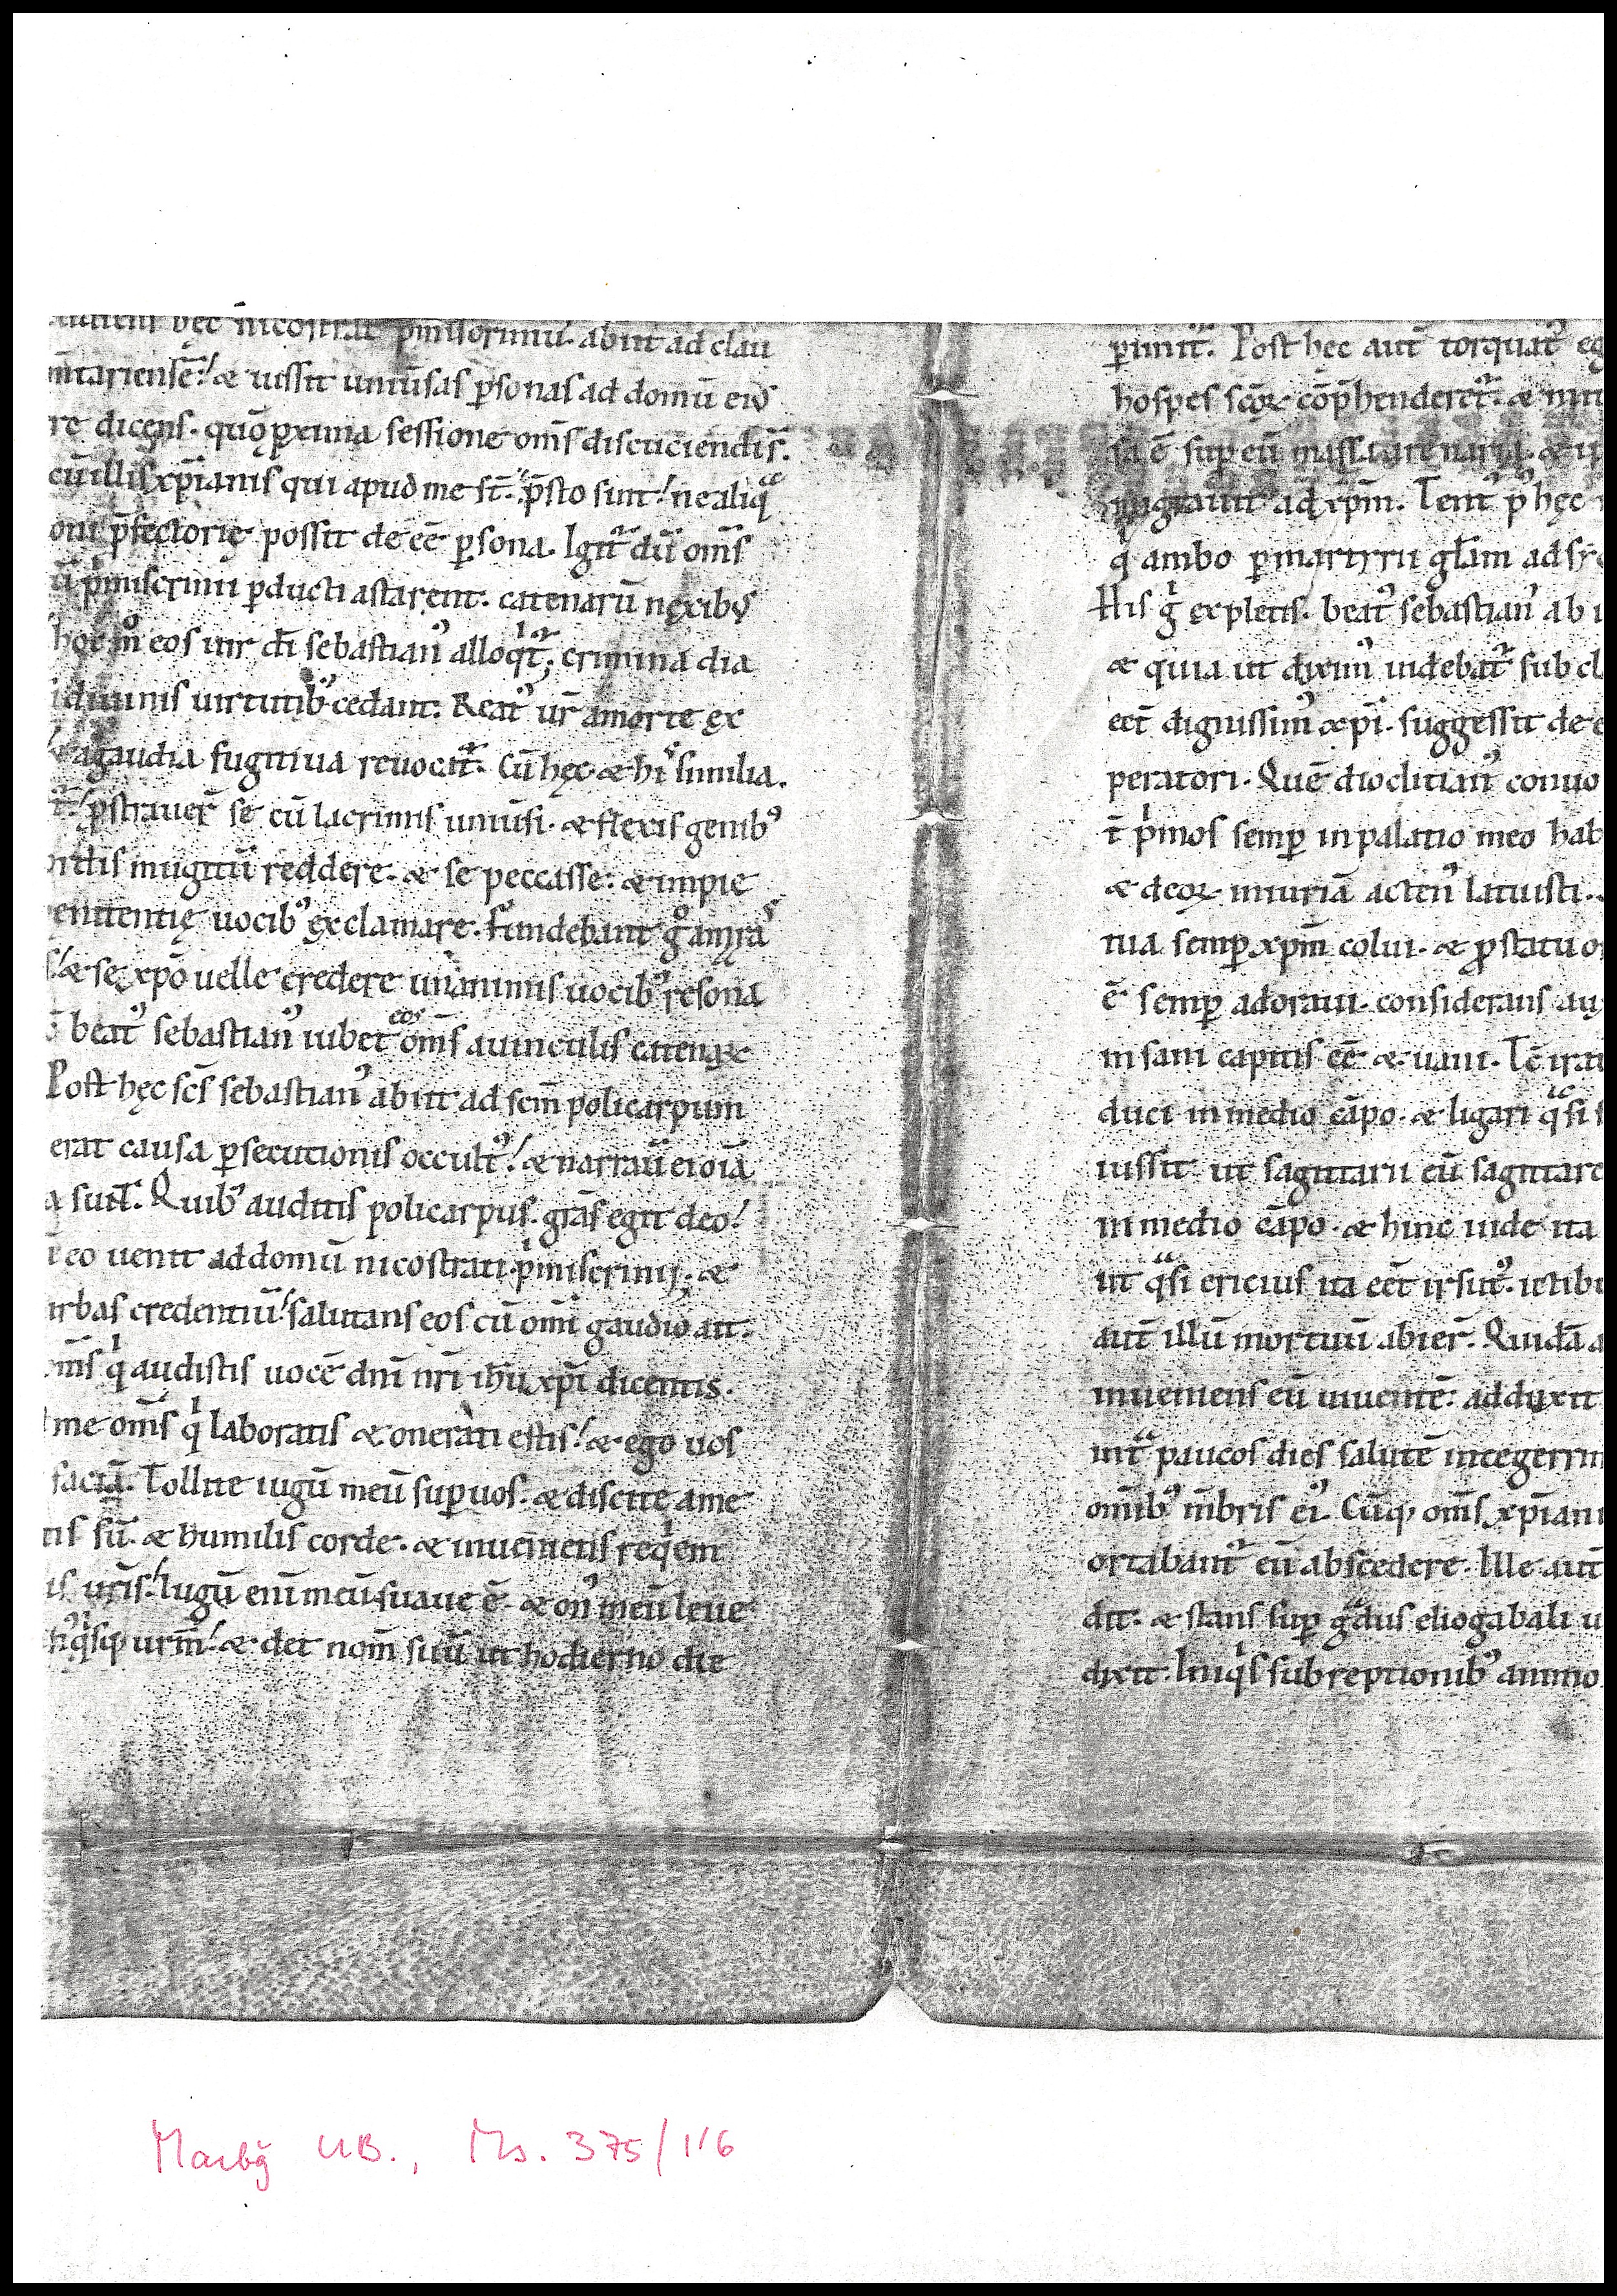 hęc nicostrat᷒ p̄miscrinius. abiit ad clau
m̄tariensē! & iussit uniu̅sas p̱sonas ad domū ei᷒
re dicens. quō p̱xima sessione om̄s discuciendis̄.
cū illis xp̄ianis qui apud me st̄. p̄sto sint! ne aliqͣ
oni p̄fectorię possit de eē p̱sona. Igit᷑ dū om̄s
p̍miscrinii p̱ducti astarent. catenarū nęxib᷒
hoc m̊ eos uir dī sebastian᷒ alloqͥt᷑; crimina dia
diuinis uirtutib᷒ cedant. Reat᷒ ur̄ a morte ex
& a gaudia fugitiua reuocat᷑. Cū hęc & hiͥ similia.
p̱strauer̄ se cū lacrimis uniu̅si. & flexis genib᷒
ordis mugitū reddere. & se peccasse. & impie
enitentię uocib᷒ exclamare. Fundebant g̊ amara᷒
& se xp̄o uelle credere unanimis uocib᷒ resona
beat᷒ sebastian᷒ iubet eos om̄s a uinculis catenaꝝ
Post hęc sc̄s sebastian᷒ abiit ad sc̄m policarpum
erat causa p̱secutionis occult᷒! & narrau̅ ei oīa
a sunt. Quib᷒ auditis policarpus. grās egit deo!
eo uenit ad domū nicostrati p̍miscrinij; &
urbas credentiū! salutans eos cū om̄i gaudio ait.
om̄s qͥ audistis uocē dn̄i nr̄i ih̄u xp̄i dicentis.
me om̄s qͥ laboratis & onerati estis! & ego uos
faciā. Tollite iugū meū sup̱ uos. & discite a me
tis sū. & humilis corde. & inuenietis reqͥem
is ur̄is! Iugū enī meū suaue ē. & on᷒ meū leue
qͥsq; ur̄m! & det nom̄ suū ut hodierno die
p̱imit᷑. Post hęc aut̄ torquat᷒ eg
hospes sc̄oꝝ cōp̄henderet᷑. & mu
sa ē sup̱ eū massa arenaria. &
migrauit ad xp̄m. Tent᷒ p᷒ hęc
q̇ ambo p̱ martyrii gl̄am ad
His g̍ expletis. beat᷒ sebastian᷒ ab
& quia ut dixim᷒ uidebat᷑ sub cl
eet̄ dignissim᷒ & xp̄i. suggessit de
peratori. Quē dioclitian᷒ conuo
t̄ p̍mos semp̱ in palatio meo hab
& deoꝝ iniuriā acten᷒ latuisti.
tua semp̱ xp̄m colui. & p̱ statu
ē semp̱ adoraui. considerans
insani capitis eē & uani. Tc̄ irat
duci in medio cāpo. & ligari qͣsi s
iussit ut sagittarii eū sagittare
in medio cāpo. & hinc inde ita
ut qͣsi ericius ita eet̄ irsut᷒. ictib
aut̄ illū mortuū abier̄. Quidā a
inueniens eū uiuentē. adduxit
int͛ paucos dies salutē integerrim
om̄ib᷒ m̄bris ei᷒. Cūq; om̄s xp̄iani
ortabant᷑ eū abscedere. Ille aut̄
dit. & stans sup̱ gͣdus eliogabali u
dixit. Iniqͥs subreptionib᷒ animo
Marbg̃ UB., Ms. 375/1'6